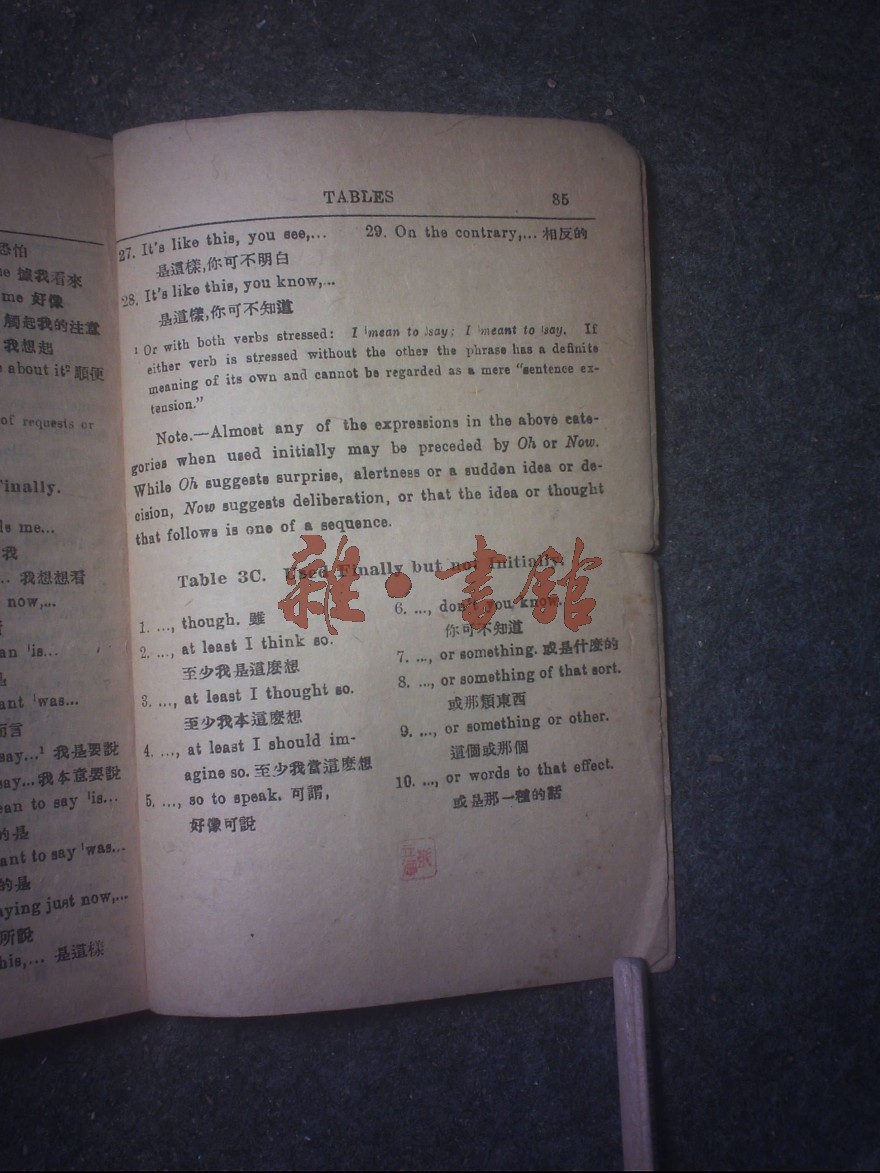 恐怕
me 據我看來
me 好像
觸起我的注意
我想起
about it² 順便
of requests or
Finally.
me...
我
.. 我想想看
now,...
an ˈis...
ant ˈwas...
而言
say...¹ 我是要說
say...我本意要說
ean to say ˈis...
的是
ant to say ˈwas...
的是
aying just now,...
所說
his,... 是這樣
TABLES 85
27. It's like this, you see,...
是這樣,你可不明白
28. It's like this, you know,...
是這樣,你可不知道
29. On the contrary,... 相反的
¹ Or with both verbs stressed: I ˈmean to ˈsay; I ˈmeant to ˈsay. If
either verb is stressed without the other the phrase has a definite
meaning of its own and cannot be regarded as a mere "sentence ex-
tension."
Note.—Almost any of the expressions in the above cate-
gories when used initially may be preceded by Oh or Now.
While Oh suggests surprise, alertness or a sudden idea or de-
cision, Now suggests deliberation, or that the idea or thought
that follows is one of a sequence.
Table 3C. Used Finally but not Initially.
1. ..., though. 雖
2. ..., at least I think so.
至少我是這麽想
3. ..., at least I thought so.
至少我本這麽想
4. ..., at least I should im-
agine so. 至少我當這麽想
5. ..., so to speak. 可謂,
好像可說
6. ..., don't you know.
你可不知道
7. ..., or something. 或是什麽的
8. ..., or something of that sort.
或那類東西
9. ..., or something or other.
這個或那個
10. ..., or words to that effect.
或是那一種的話
雜·書館